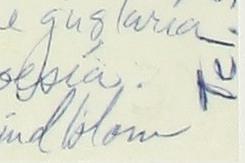 e guglaria
oessia.
indblom
Tel.